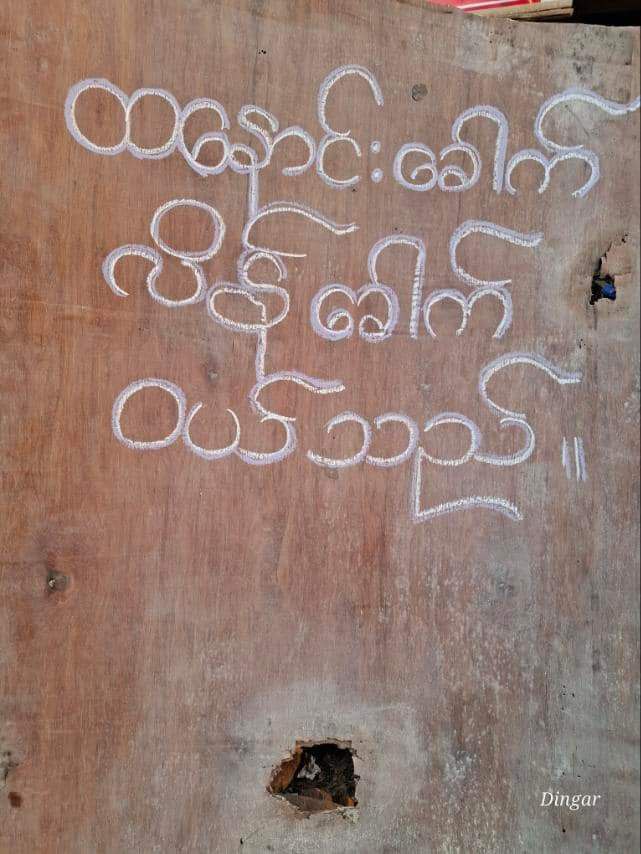 ထနောင်းခေါက်
လိန်ခေါက်
ဝယ်သည်။
Dingar